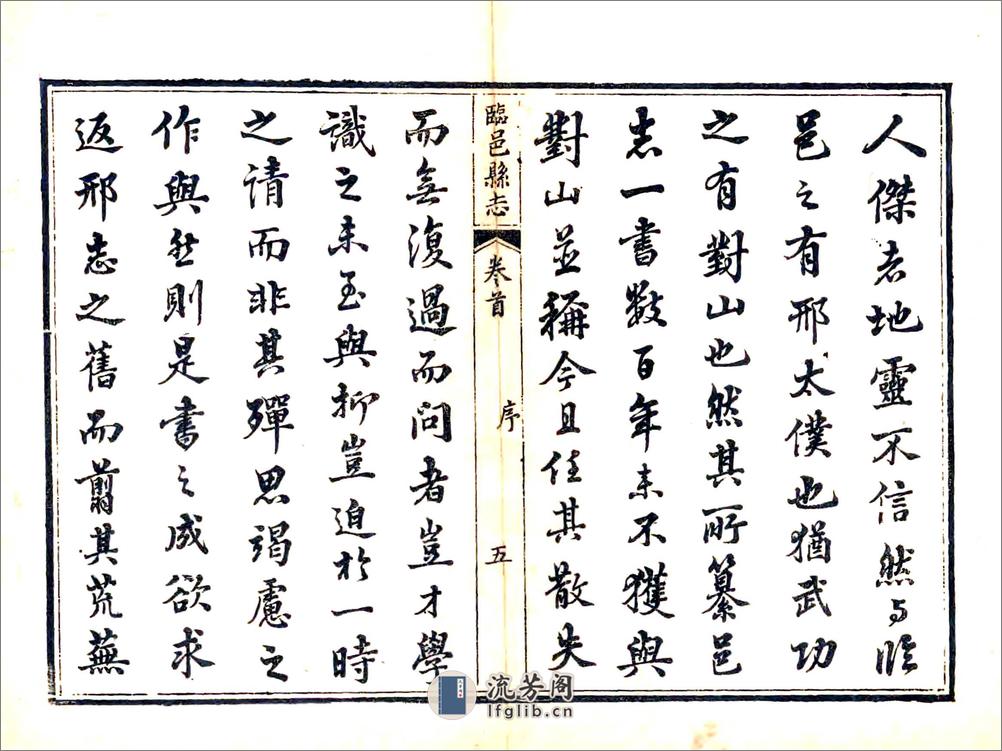 人傑者地靈不信然与臨
邑之有邢太僕也猶武功
之有對山也然其所纂邑
志一書數百年来不獲與
對山並稱今且任其散失
臨邑縣志 卷首 序 五
而無復過而问者豈才學
識之未至與抑豈迫於一時
之请而非其殫思竭慮之
作與然則是書之成欲求
返邢志之舊而翦其荒蕪
流芳阁
lfglib.cn